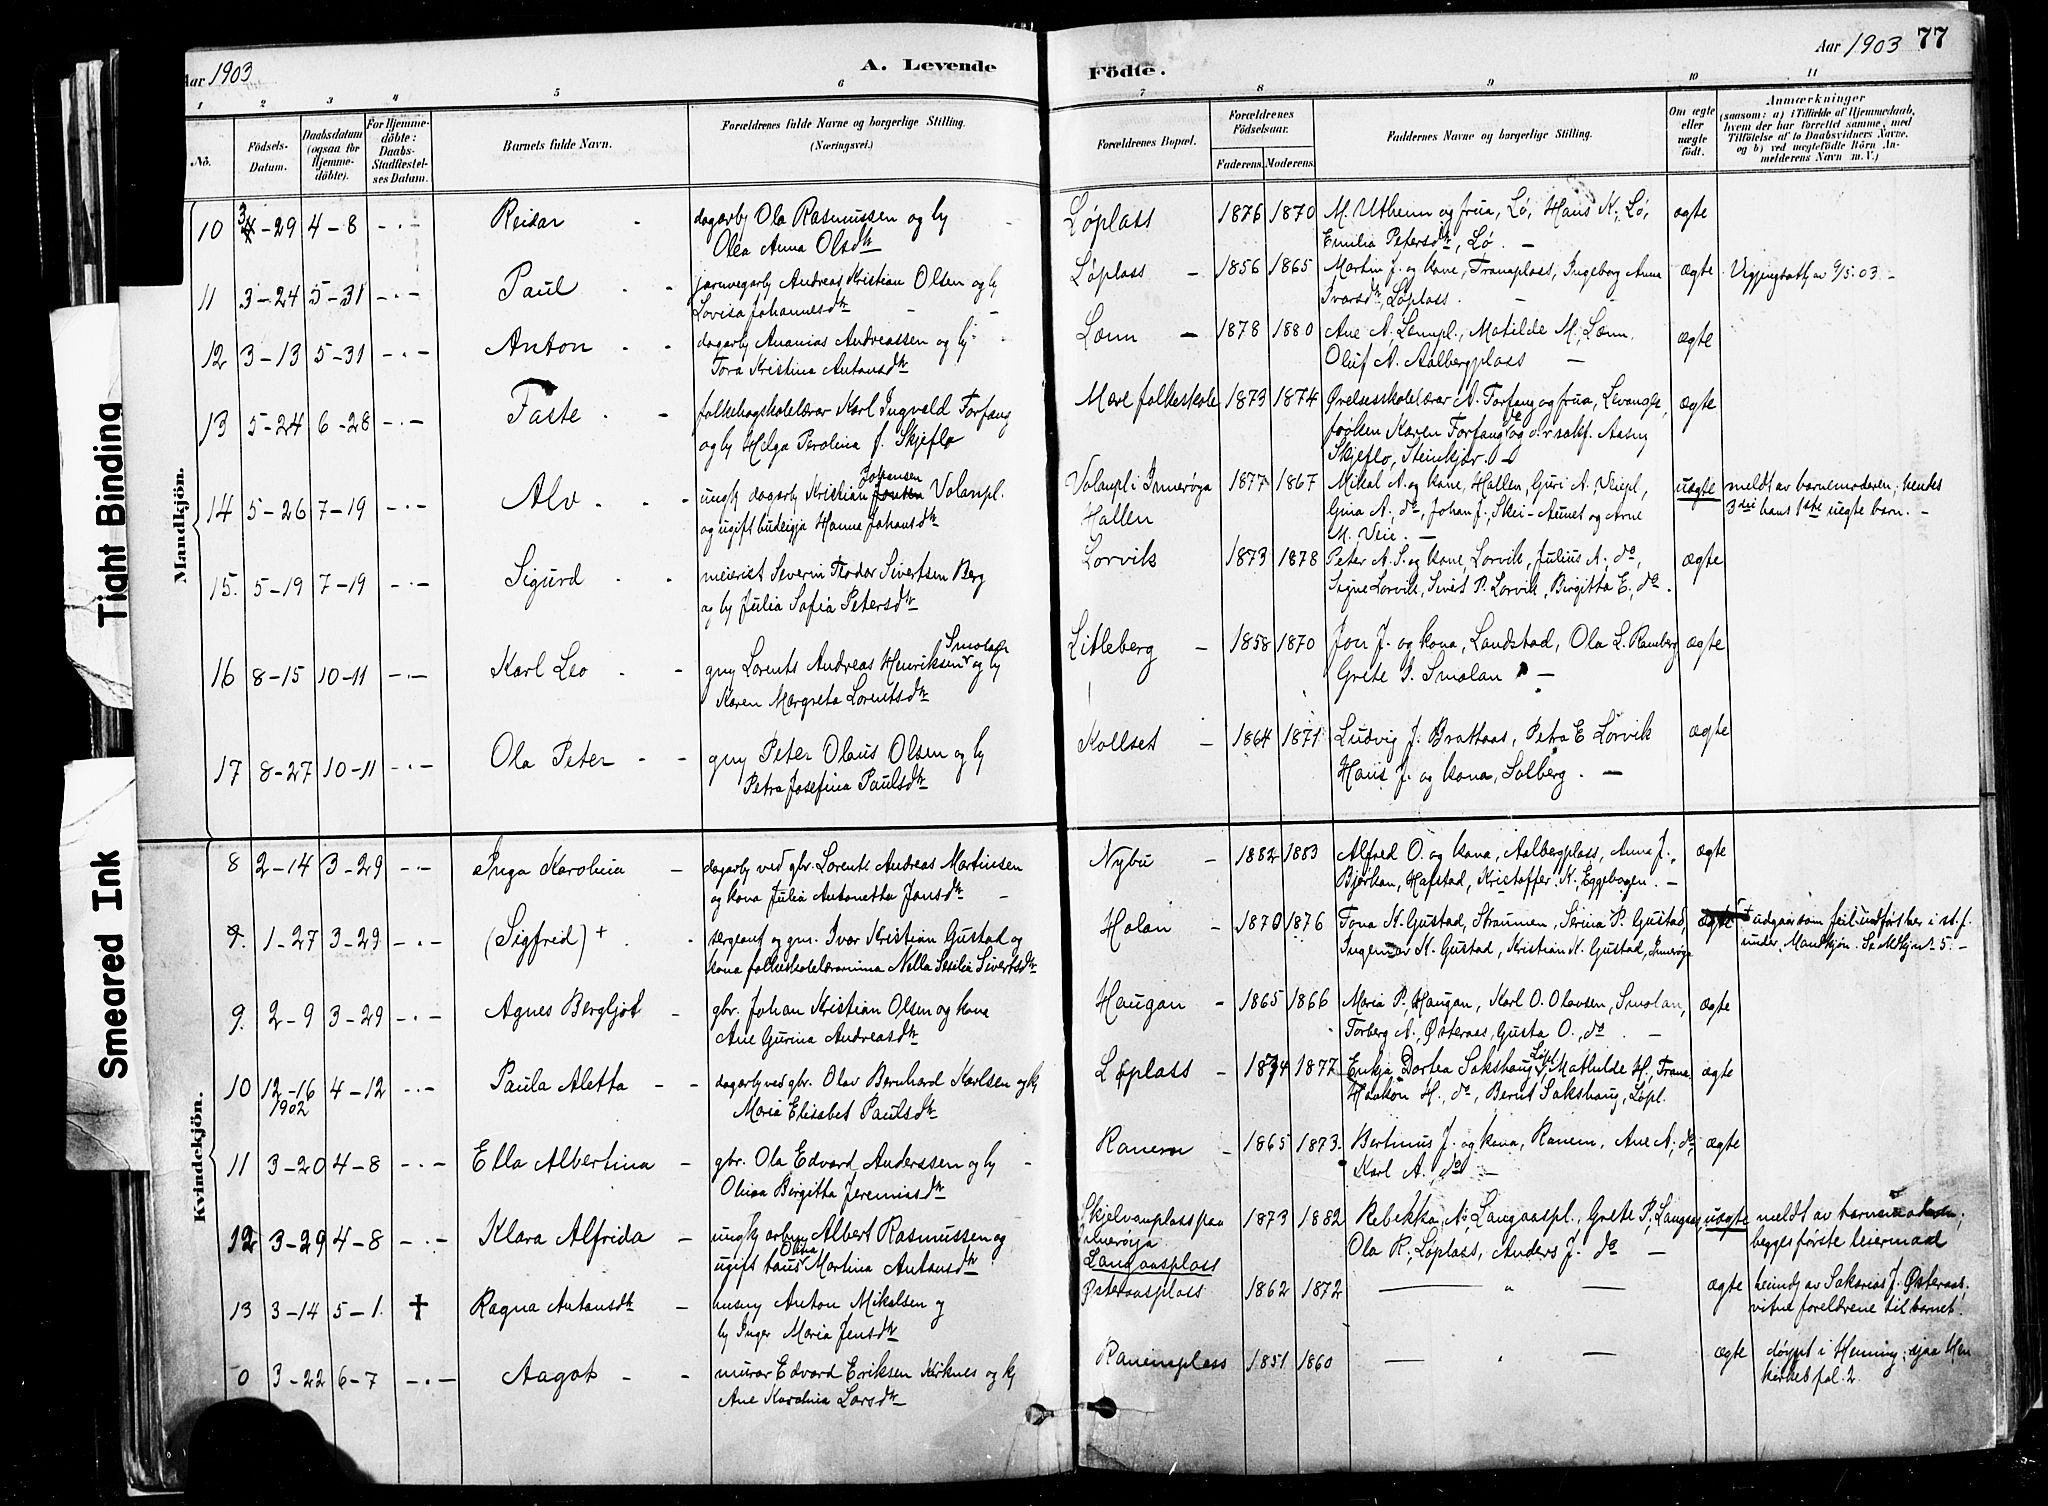 Aar 1903
A. Levende
Födte.
Aar 1903 77
1 2 3 4 5 6 7 8 9 10 11
No.
Födsels-Datum.
Daabsdatum (ogsaa for Hjemme-döbte).
For Hjemme-döbte: Daabs-Stadfæstel-ses Datum.
Barnets fulde Navn.
Forældrenes fulde Navne og borgerlige Stilling.
(Næringsvei.)
Forældrenes Bopæl.
Forældrenes Födselsaar.
Faderens. Moderens.
Faddernes Navne og borgerlige Stilling.
Om ægte eller uægte födt.
Anmærkninger
(saasom: a) i Tilfælde af Hjemmedaab, hvem der har forrettet samme, med Tilföielse af to Daabsvidners Navne, og b) ved uægtefödte Börn An-melderens Navn m. V.)
Tight Binding
Smeared Ink
Mandkjön.
10 3-29 4-8 -.- Reidar - dagarb Ola Rasmussen og hy
Olea Anna Olsdtr
Løplass 1876 1870 M. Utheim og frua, Lø, Hans K. Lø,
Emilia Petersdtr, Lø. - ægte
11 3-24 5-31 -.- Paul - jarnvegarb Andreas Kristian Olsen og hy
Lovisa Johannesdtr
Løplass - 1856 1865 Martin J. og kone, Tranaplass, Ingeborg Anna
Ivarsdtr, Løplass. - ægte 9/5.03 -
12 3-13 5-31 -.- Anton - dagarb Ananias Andreassen og hy
Tora Kristina Antonsdtr
Lænn - 1878 1880 Ane A. Lænnpl., Matilde M. Lænn,
Oluf A. Aalbergplass - ægte
13 5-24 6-28 -.- Faste - folkehøgskolelærar Karl Ingvald Torfang
og hy Helga Perolina J. Skjeflo
Mære folkeskole 1873 1874 Øvelsesskolelærar A. Torfang og frua, Levanger,
frøken Karen Torfang do og Aasny
Skjeflo, Steinkjær. - ægte
14 5-26 7-19 -.- Alv - ungk dagarb Kristian Johansen Volanpl.
og ugift budeigja Hanna Johansdtr
Volanpl i Inderøya
Hallen
1877 1867 Mikal A. og kone, Hallen, Guri A. Veiepl,
Gina A., do, Johan J., Skei-Aunet og Arne
M. Veie. - uægte meldt av barnemoderen; hendes
3die hans 1ste uegte barn. -
15. 5-19 7-19 -.- Sigurd - meierist Severin Teodor Sivertsen Berg
og hy Julia Sofia Petersdtr
Lorvik 1873 1878 Peter A. S. og kone, Lorvik, Julius A. do,
Signe Lorvik, Sivert P. Lorvik, Birgitta E., do. ægte
16 8-15 10-11 -.- Karl Leo - gmy Lorents Andreas Henriksen Smolan og hy
Karen Margreta Lorentsdtr
Litleberg - 1858 1870 Jon J. og kona, Landstad, Ola L. Ramberg
Grete J. Smolan - ægte
17 8-27 10-11 -.- Ola Peter - gmy Peter Olaus Olsen og hy
Petra Josefina Paulsdtr
Kollset - 1864 1871 Ludvig J. Brattaas, Petra E Lorvik
Hans J. og kona, Solberg. - ægte
Kvindekjön.
8 2-14 3-29 -.- Inga Karolina - dagarb ved gbr. Lorents Andreas Martinsen
og kona Julia Antonetta Jonsdtr
Nybu - 1882 1883 Alfred O. og kona, Aalbergplass, Anna J.,
Bjørkan, Hafstad, Kristoffer K. Eggebogen. - ægte
9. 1-27 3-29 -.- (Sigfred)+ sergeant og gm. Ivar Kristian Gustad og
kona folkeskolelærarinna Nella Sesilie Sivertsdtr
Holan - 1870 1876 Tona K. Gustad, Straumen, Serina P. Gustad,
Ingemar K. Gustad, Kristian K. Gustad, Inderøya ægte + udgaar som feil indført her i st. f.
under Mandkjøn. Se Mkjøn No 5. -
9. 2-9 3-29 -.- Agnes Bergljot - gbr. Johan Kristian Olsen og kona
Ane Gurina Andreasdtr
Haugan - 1865 1866 Maria P. Haugan, Karl O. Olavsen, Smolan,
Torberg A., Østeraas, Gusta O., do. - ægte
10 12-16 1902 4-12 -.- Paula Aletta - dagarb ved gbr. Olav Bernhard Karlsen og hy
Maria Elisabet Paulsdtr
Løplass - 1874 1872 Enkja Dortea Sakshaug Løpl, Mathilde H., Trana
Haakon H., do, Bernt Sakshaug, Løpl. ægte
11 3-20 4-8 -.- Ella Albertina - gbr. Ola Edvard Anderssen og hy
Olina Birgitta Jeremiasdtr
Ranem - 1865 1873 Bertinus J. og kona, Ranem, Ane A., do,
Karl A. do - ægte
12 3-29 4-8 -.- Klara Alfrida - ungk Albert Rasmussen og
ugift taus Olina Martina Antonsdtr
Skjelvanplass paa
Inderøya
Langaasplass
1873 1882 Rebekka A. Langaaspl., Grete P. Langaas,
Ola R. Løplass, Anders J. do - uægte meldt av barnemoderen;
begges første leiermaal
13 3-14 5-1. ✝ Ragna Antonsdtr - husmy Anton Mikalsen og
hy Inger Maria Jensdtr
Østeraasplass 1862 1872 - " - ægte heimdj av Sakarias J. Østeraas,
vitne foreldrene til barnet.
0 3-22 6-7 -.- Aagot - murar Edvard Eriksen Kirknes og hy
Ane Karolina Larsdtr
Ranemplass 1851 1860 - " - ægte døypt i Henning; sjaa Hen
kirkes pol. 2.